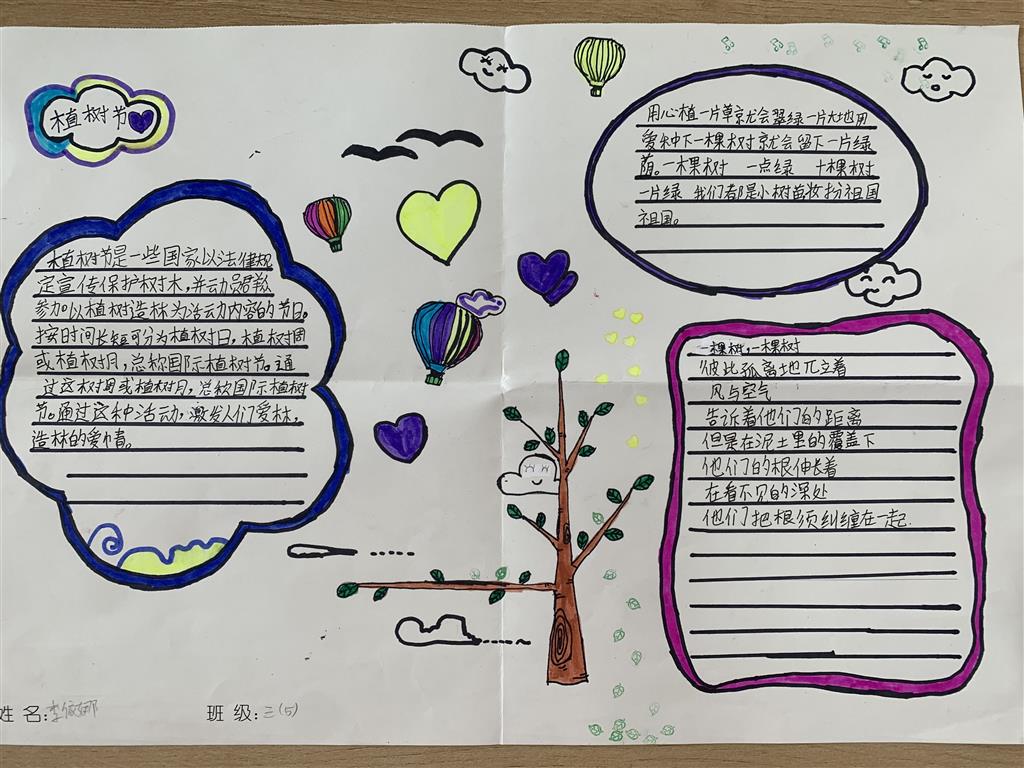 植树节
植树节是一些国家以法律规
定宣传保护树木,并动员群众
参加以植树造林为活动内容的节日。
按时间长短可分为植树日,植树周
或植树月,总称国际植树节。通
过这树周或植树月,总称国际植树
节。通过这种活动,激发人们爱林,
造林的爱情。
用心植一片草京尤会翠绿一片大地用
爱种下一棵树京尤会留下一片绿
荫。一棵树 一点绿 十棵树
一片绿 我们都是小树苗妆扮祖国
祖国。
一棵树,一棵树
彼此孤离地兀立着
风与空气
告诉着他们的距离
但是在泥土里的覆盖下
他们的根伸长着
在看不见的深处
他们把根须纠缠在一起.
姓 名:李
班 级:三(5)